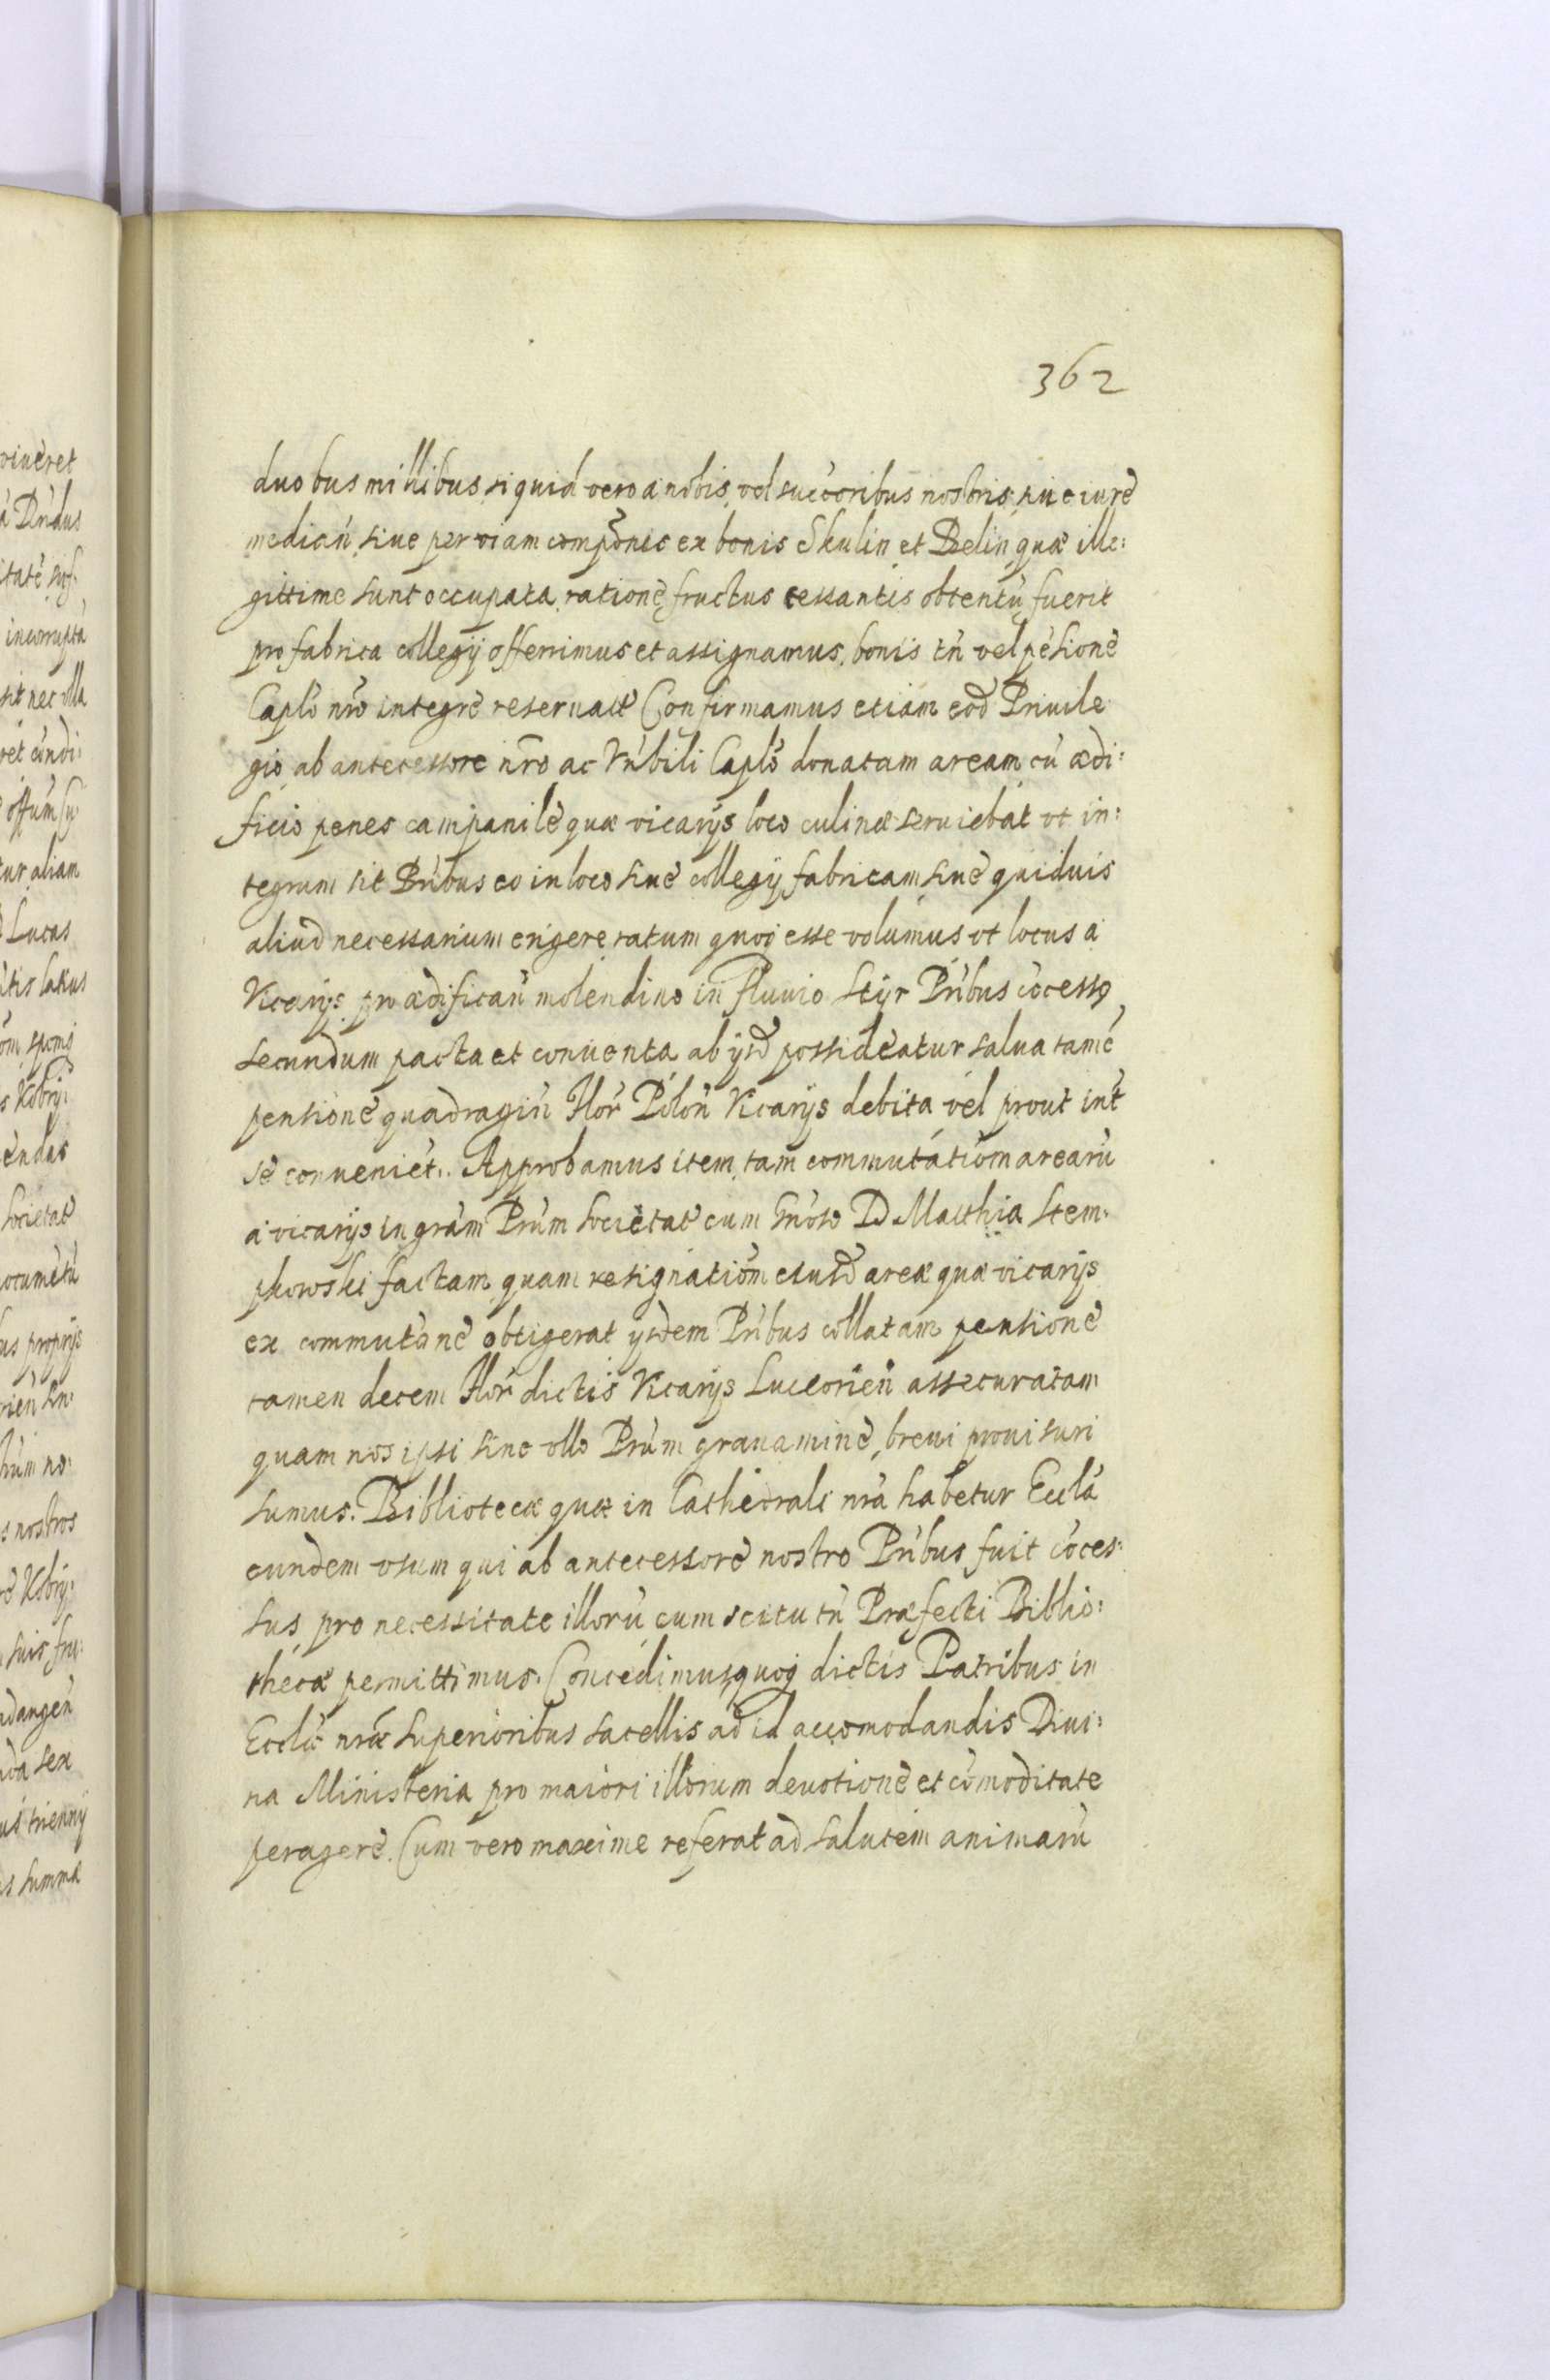 362
duobus millibus, siquid vero a nobis, vel succoribus nostris, siue iurè
median̄ siue per viam compōnis ex bonis Skulin et Belin quæ ille:
gittime sunt occupata, rationè fructus cessantis obtentū fuerit
pro fabrica collegij offerimus et assignamus, bonis tn̄ vel pēsionè
Caplo nr̄o integrè reseruatis Confirmamus etiam eod Priuile
gio ab antecessore nr̄o ac Vn̄bili Caplo donatam aream cū ædi:
ficio penes campanilè quæ vicarijs loco culinæ seruiebāt vt in:
tegrum sit Pr̄ibus eo in loco siuè collegij fabricam siuè quiduis
aliud necessarium erigere, ratum quoq esse volumus vt locus a
Vicarijs pro ædifican̄ molendino in fluuio Styr Pr̄ibus cōcessꝯ
secundum pacta et conuenta ab ijsd possideatur salua tamē
pensionè quadragin̄ flor̄ Polon̄ Vicarijs debita vel prout int̄
se conueniēt. Approbamus item tam commutatiōm arearū
a vicarijs in gr̄am Pr̄um Societat̄ cum Gn̄oso D Matthia Stem:
pkowski factam, quam resignatiōm eiusd areæ quæ vicarijs
ex commutānè obtigerat ijsdem Pr̄ibus collatam pensionè
tamen decem flor̄ dictis Vicarijs Luceorien̄ assecuratam
quam nos ipsi sine vllo Pr̄um grauaminè, breui prouisuri
sumus. Bibliotecæ quæ in Cathedrali nr̄a habetur Eccla
eundem vsum qui ab antecessorè nostro Pr̄ibus fuit cōces:
sus pro necessitate illorū cum scitu tn̄ Præfecti Biblio:
thecæ permittimus. Concedimus quoq dictis Patribus in
Ecclæ nr̄æ superioribus sacellis ad id accomodandis Diui:
na Ministeria pro maiori illorum deuotionè et cōmoditate
peragerè. Cum vero maxime referat ad salutem animarū